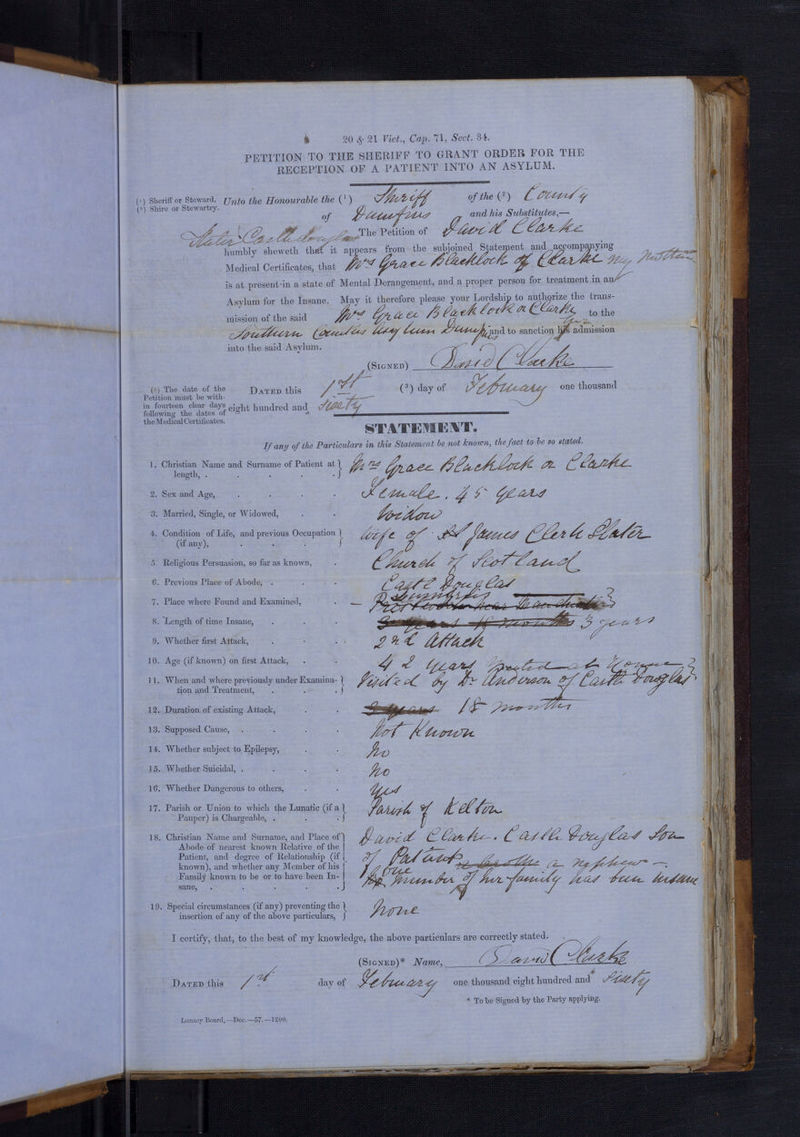 20 & 21 Vict., Cap. 71, Sect. 34.
PETITION TO THE SHERIFF TO GRANT ORDER FOR THE
RECEPTION OF A PATIENT INTO AN ASYLUM.
(¹) Sheriff or Steward.
(²) Shire or Stewartry.
Unto the Honourable the (¹) Sheriff of the (²) County
of Dumfries and his Substitutes,—
The Petition of David Clarke
Slater Castle Douglas
humbly sheweth that it appears from the subjoined Statement and accompanying
Medical Certificates, that Mrs Grace Blacklock or Clarke my Mother
is at present in a state of Mental Derangement, and a proper person for treatment in an
Asylum for the Insane. May it therefore please your Lordship to authorize the trans-
mission of the said Mrs Grace Blacklock or Clarke to the
Southern Counties Asylum Dumfries and to sanction her admission
into the said Asylum.
(SIGNED) David Clarke
(³) The date of the
Petition must be with-
in fourteen clear days
following the dates of
the Medical Certificates.
DATED this 1st (³) day of February one thousand
eight hundred and Sixty
STATEMENT.
If any of the Particulars in this Statement be not known, the fact to be so stated.
1. Christian Name and Surname of Patient at length, . Mrs Grace Blacklock or Clarke
2. Sex and Age, Female. 45 years
3. Married, Single, or Widowed, Widow
4. Condition of Life, and previous Occupation (if any), Wife of James Clerk Slater
5. Religious Persuasion, so far as known, Church of Scotland
6. Previous Place of Abode, . Castle Douglas
7. Place where Found and Examined, Dumfries
8. Length of time Insane, 3 years
9. Whether first Attack, 2nd Attack
10. Age (if known) on first Attack, 42 years
11. When and where previously under Examina-tion and Treatment, Visited by Dr Anderson of Castle Douglas
12. Duration of existing Attack, 18 months
13. Supposed Cause, . Not Known
14. Whether subject to Epilepsy, No
15. Whether Suicidal, . No
16. Whether Dangerous to others, Yes
17. Parish or Union to which the Lunatic (if a Pauper) is Chargeable, . Parish of Kelton
18. Christian Name and Surname, and Place of Abode of nearest known Relative of the Patient, and degree of Relationship (if known), and whether any Member of his Family known to be or to have been In-sane, David Clarke. Castle Douglas Son
of Patient a nephew —
One member of her family has been insane
19. Special circumstances (if any) preventing the insertion of any of the above particulars, None
I certify, that, to the best of my knowledge, the above particulars are correctly stated.
(SIGNED)* Name, David Clarke
DATED this 1st day of February one thousand eight hundred and Sixty
* To be Signed by the Party applying.
Lunacy Board,—Dec.—57.—1200.